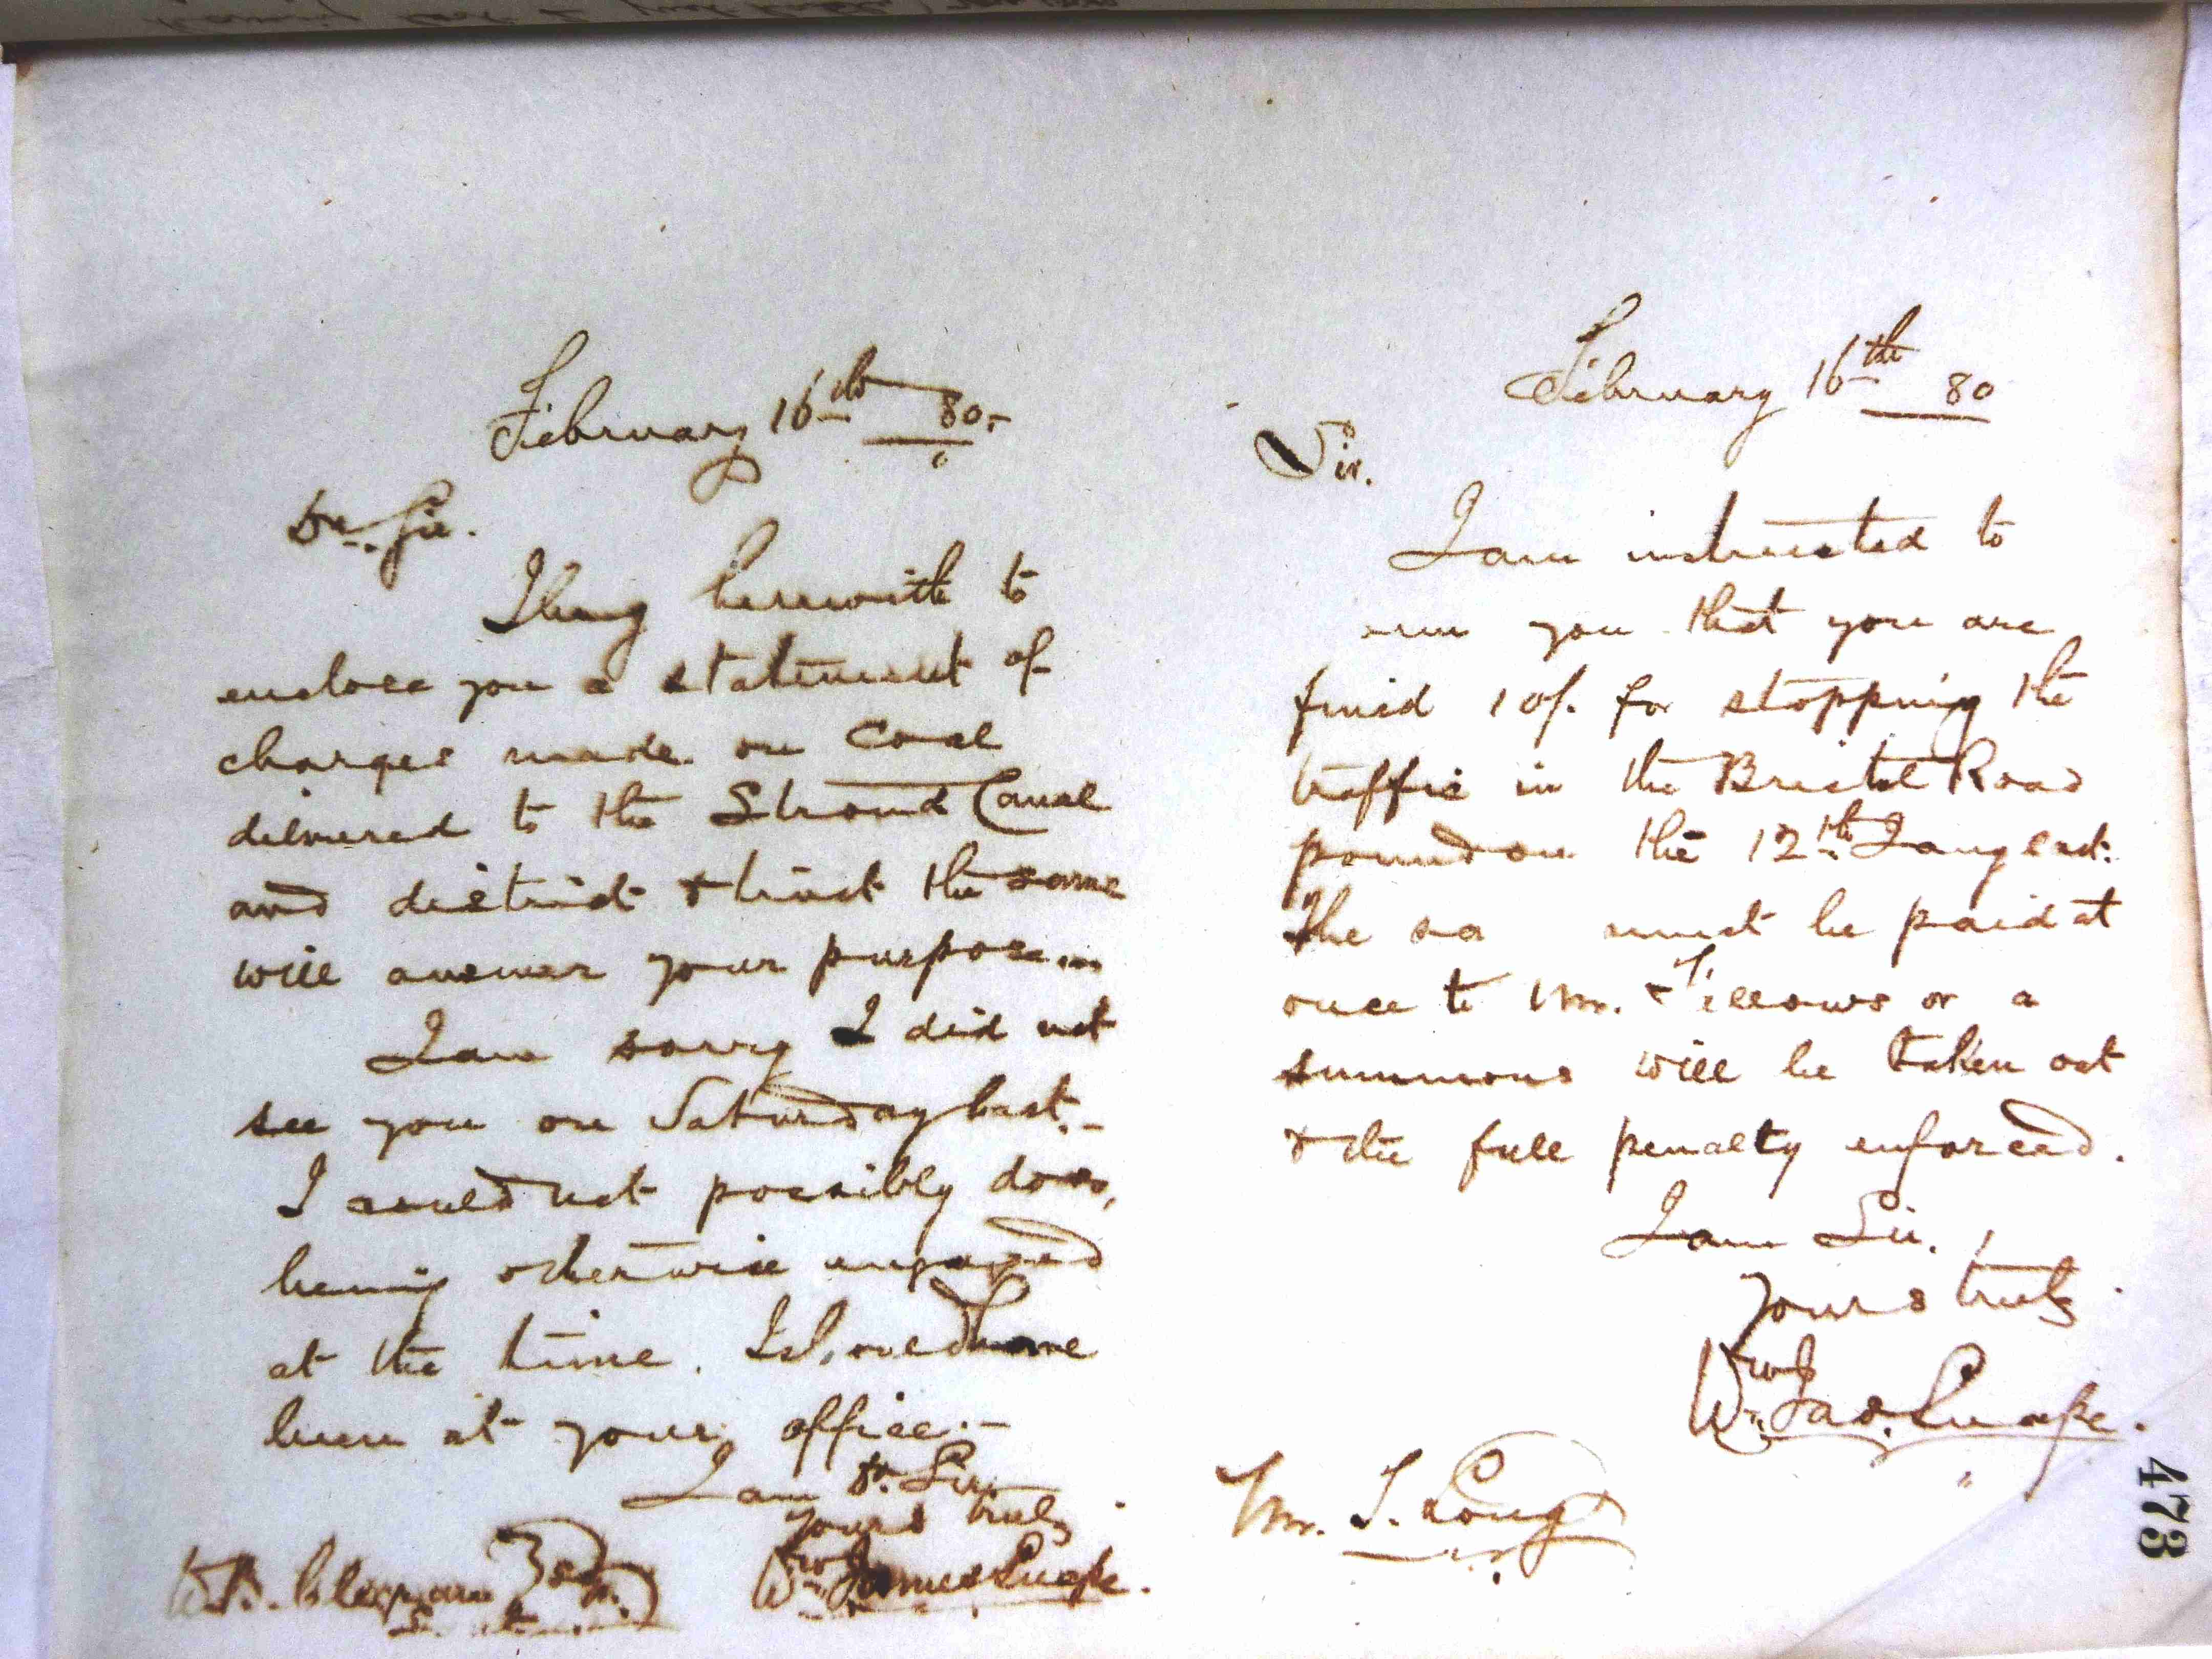 February 16th 80.
Dr. Sir.
I beg herewith to
enclose you a statement of
charges made on Coal
delivered to the Stroud Canal
and district & trust the same
will answer your purpose
I am sorry I did not
see you on Saturday last.
I could not possibly do so,
being otherwise engaged
at the time. I should have
been at your office.
I am Dr. Sir
Yours truly
W.B. Clegram Esq.
Wm. James Snape.
February 16th 80
Sir.
I am instructed to
you that you are
fined 10/. for stopping the
traffic in the Bristol Road
pound on the 12th Jany last.
The sa must be paid at
once to Mr. Fellows or a
summons will be taken out
& the full penalty enforced.
I am Sir.
Yours truly
Wm. Jas. Snape.
Mr. S. Long
473